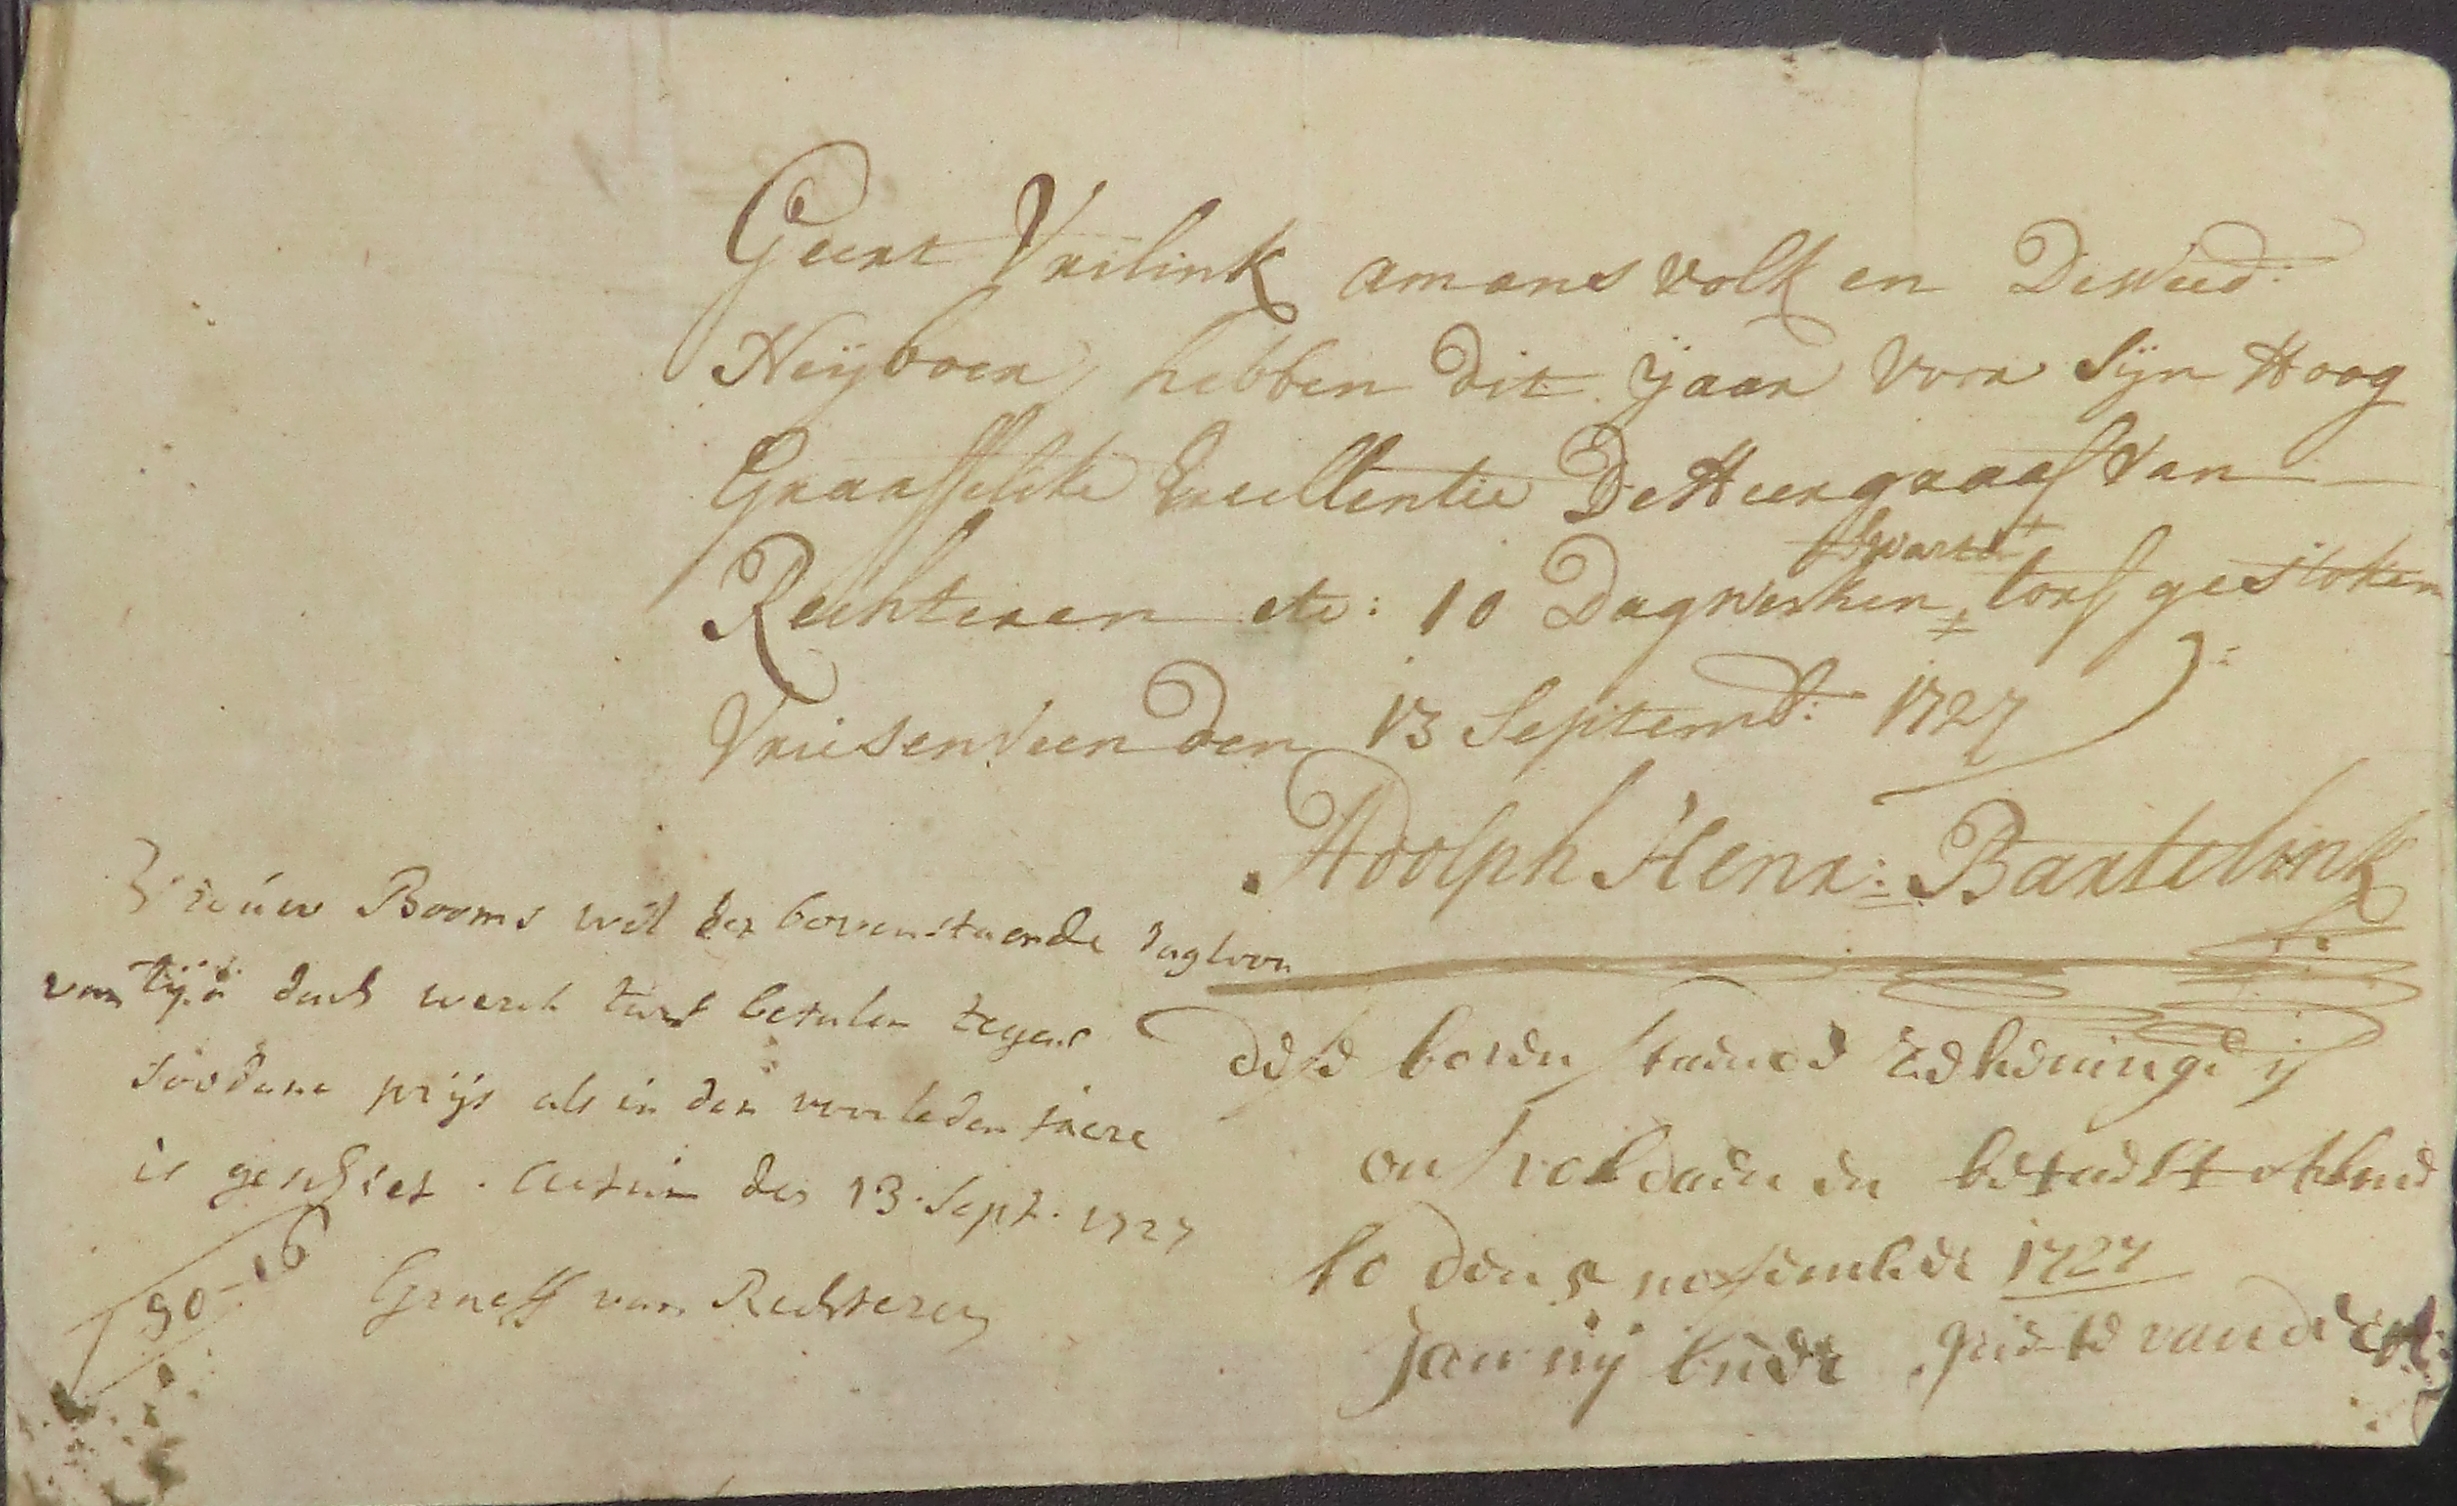 Geert Vrilink amans volk en De Wed:
Neijboer, hebben dit Ÿaar voor Sijn Hoog
Graaffelike Excellentie De Heer graaf van
Rechteren etc: 10 Dagwerken swarte torf gestoken
Vriesenveen den 13 Septemb: 1727
Adolph Henr: Bartelink
Vrouw Booms wil de bovenstaende dagloon
van tijn dach werck turf betalen tegens
soodane prijs als in den voorleden jaere
is geschiet. Actum den 13. Sept. 1727
Graeff van Rechteren
30-16
dese boven staende rekeninge is
ons voldaen en betaelt Almelo
den 5 november 1727
Jan nij buer